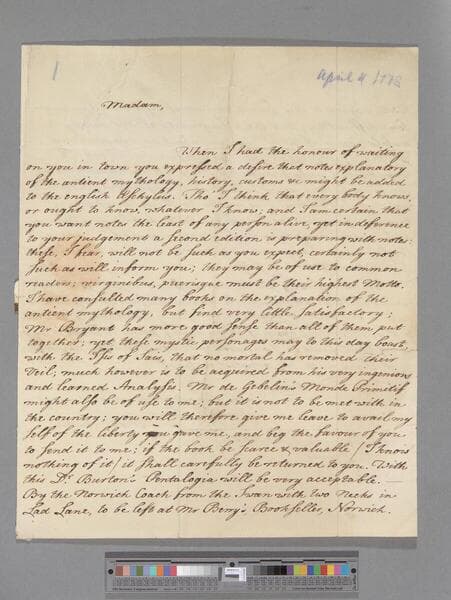 1
April 4 1778
Madam,
When I had the honour of waiting
on you in town you expressed a desire that notes explanatory
of the antient mythology, history, customs &c might be added
to the english Æschylus. Tho' I think that every body knows,
or ought to know, whatever I know; and I am certain that
you want notes the least of any person alive, yet in deference
to your judgement a second edition is preparing with notes:
these, I fear, will not be such as you expect, certainly not
such as will inform you; they may be of use to common
readers; virginibus, puerisque must be their highest Motto.
I have consulted many books on the explanation of the
antient mythology, but find very little satisfactory;
Mr Bryant has more good sense than all of them put
together; yet these mystic personages may to this day boast,
with the Isis of Sais, that no mortal has removed their
Veil; much however is to be acquired from his very ingenious
and learned Analysis. Mr de Gebelin's Monde Primitif
might also be of use to me; but it is not to be met with in
the country; you will therefore give me leave to avail my
self of the liberty you gave me, and beg the favour of you
to send it to me; if the book be scarce & valuable (I know
nothing of it) it shall carefully be returned to you. With
this Dr Burton's Pentalogia will be very acceptable. —
By the Norwich Coach from the Swan with two Necks in
Lad Lane, to be left at Mr Berry's Bookseller, Norwich.